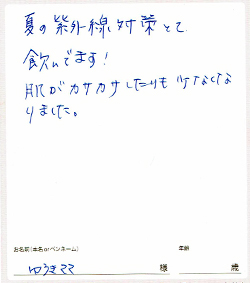 夏の紫外線対策とて
飲んでます！
肌がカサカサしたりも少なくな
りました。
お名前(本名orペンネーム)
年齢
ゆうきママ 様 歳